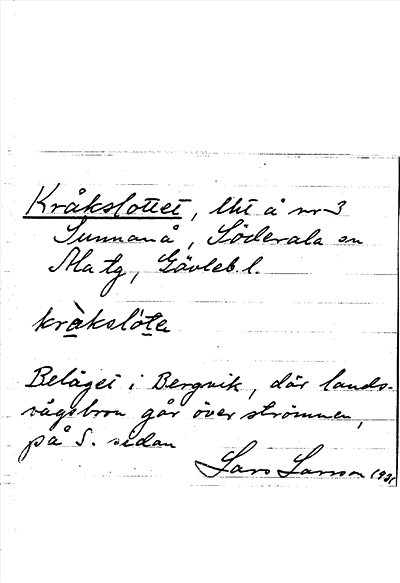 Kråkslottet, lht å nr 3
Sunnanå, Söderala sn
Ala tg, Gävleb. l.
kràkslóte
Beläget i Bergvik, där lands-
vägsbron går över strömmen,
på S. sidan
Lars Larsson 1931